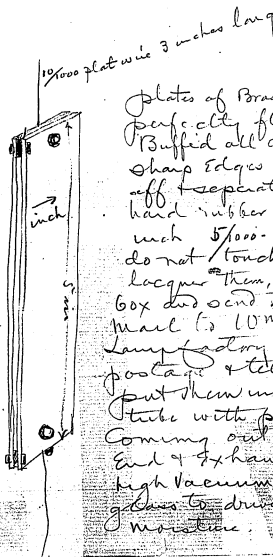 10/1000 plat wire 3 inches long
plates of Bra
perfectly fl
Buffed all o
sharp Edges
off & separat
hard rubber
inch 5/1000.
do not touch
lacquer them,
box and send
mail to
Lamp factory
postage & tel
put them in
tube with p
Coming out
End & Exhau
high Vacuum
glass to driv
moisture.
inch
5 in